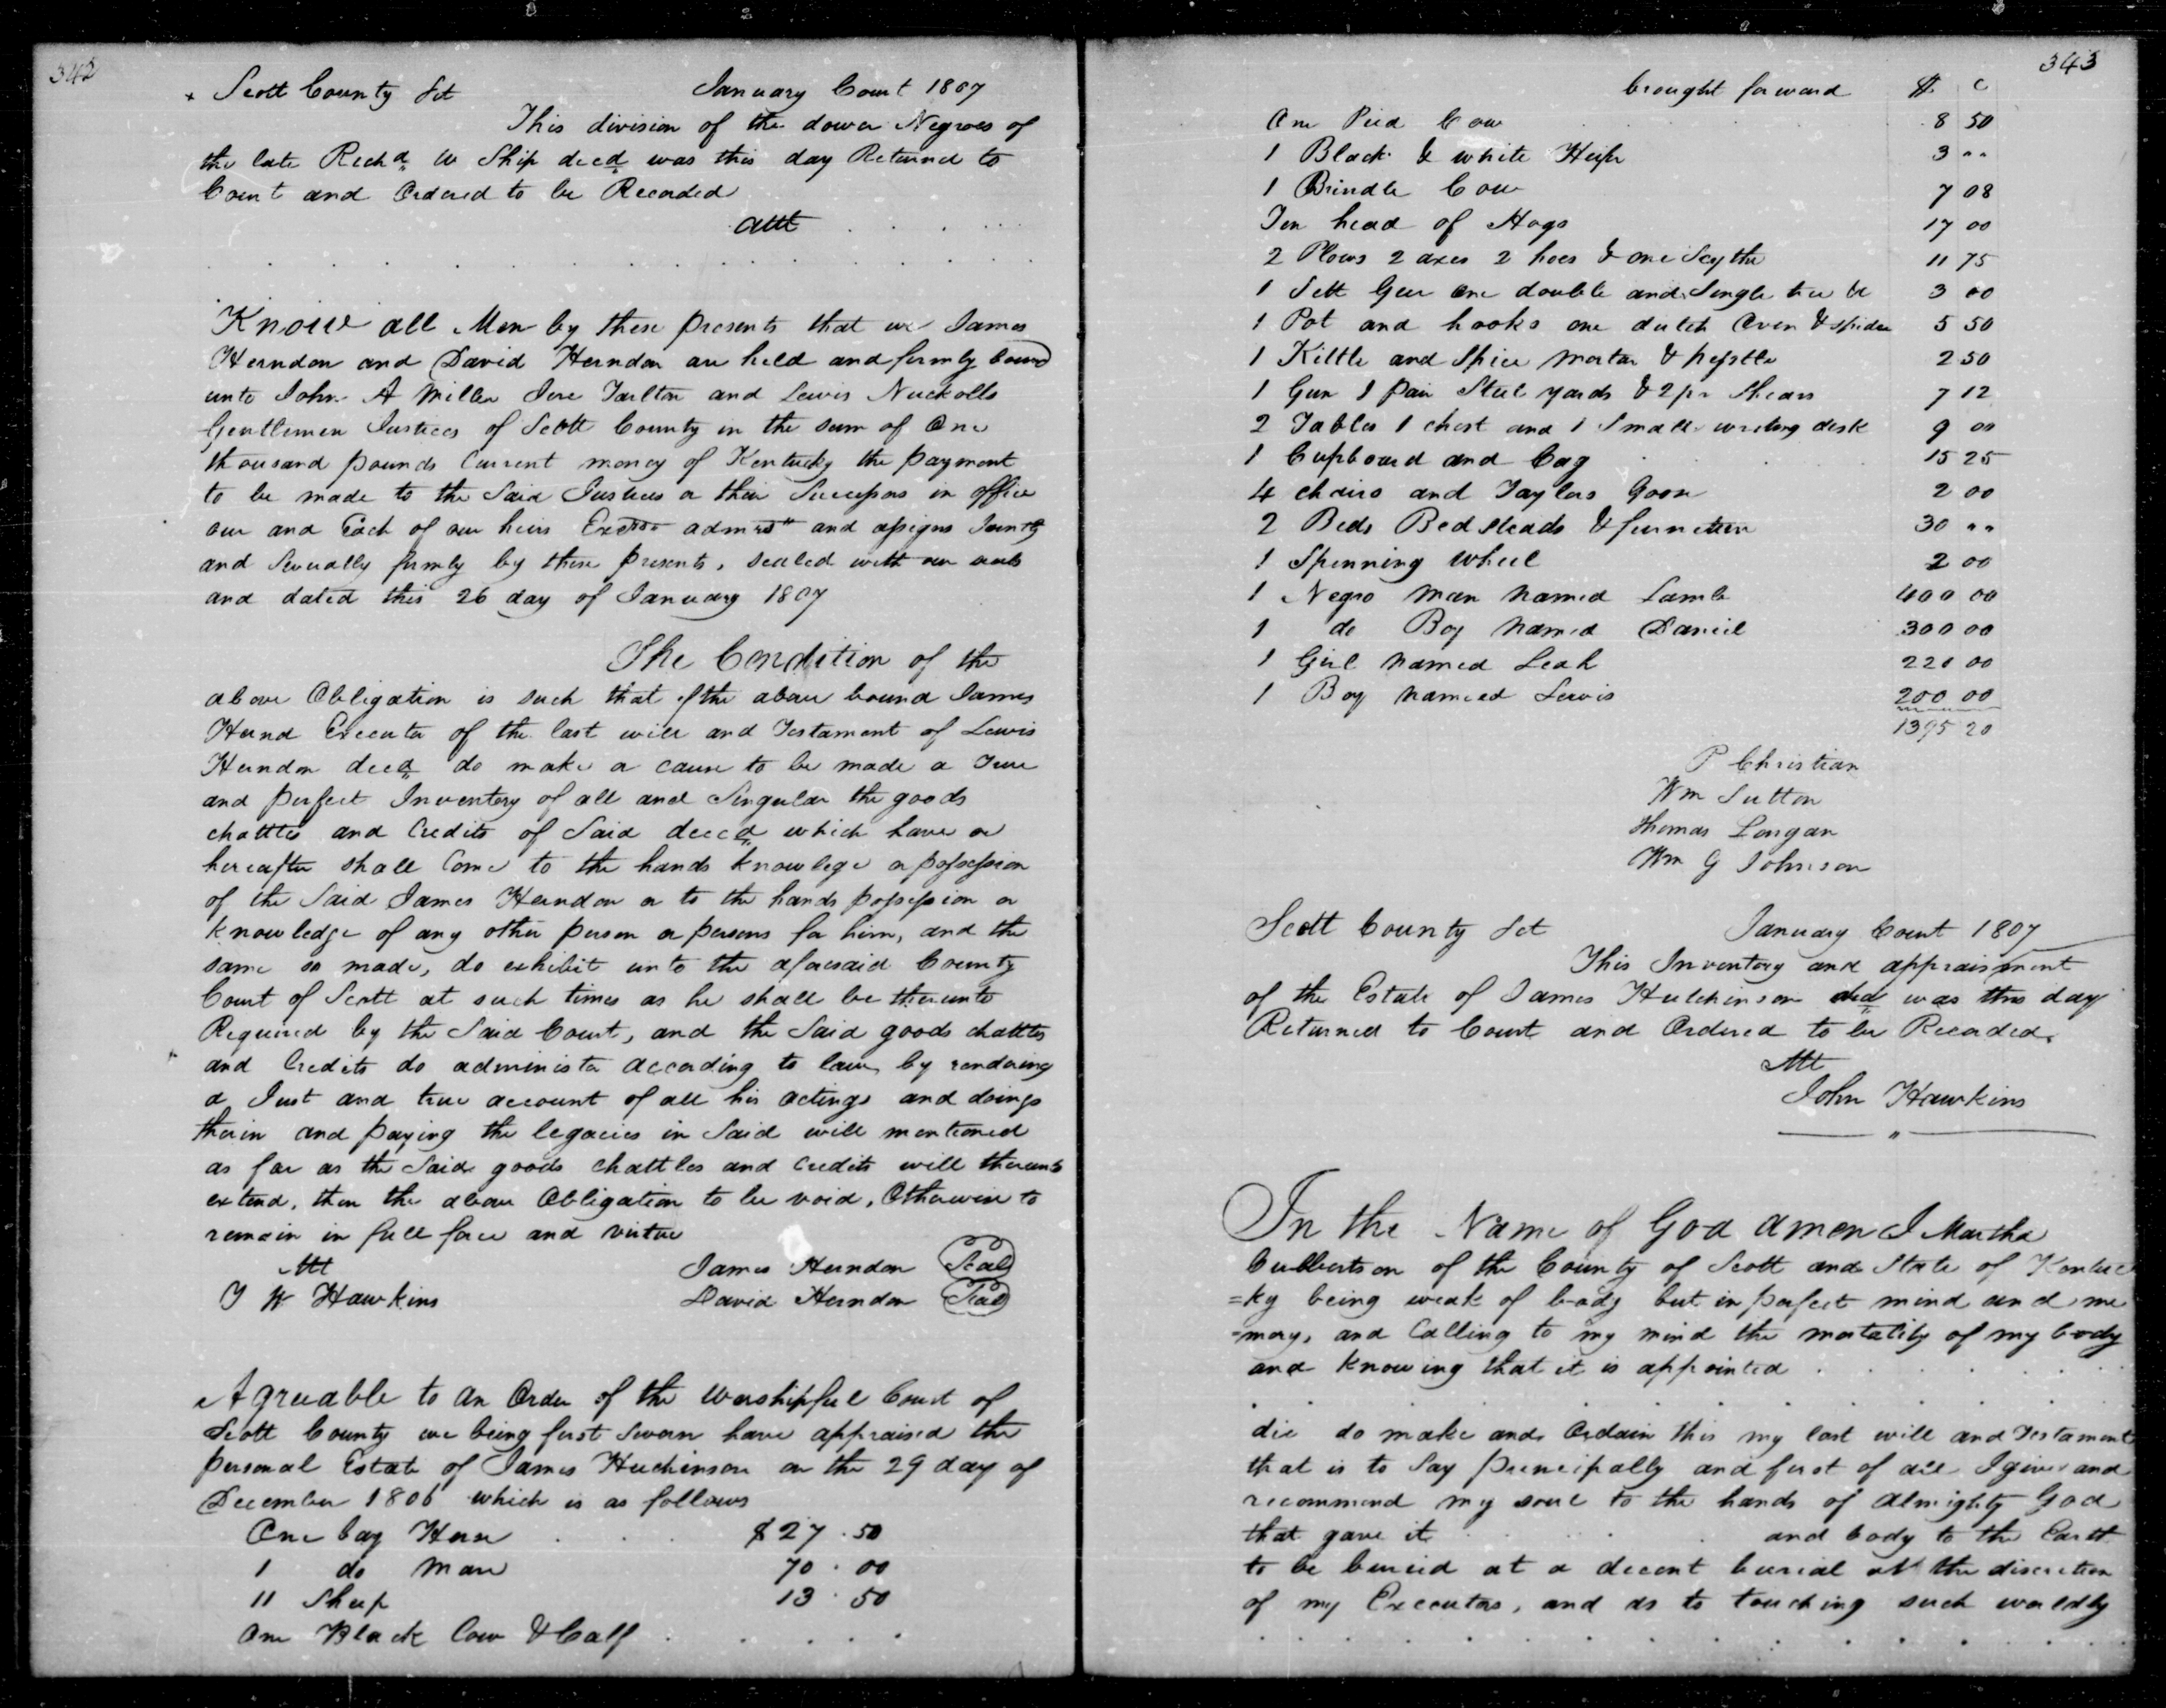 342
+ Scott County Sct January Court 1807
This division of the dower Negroes of
the late Richd W Ship decd was this day Returned to
Court and Ordered to be Recorded
Att
Know all Men by these presents that we James
Herndon and David Herndon are held and firmly bound
unto John A Miller Jere Tarlton and Lewis Nuckolls
Gentlemen Justices of Scott County in the sum of One
thousand pounds Current money of Kentucky the payment
to be made to the Said Justices or their Successors in office
our and Each of our heirs Exctrs admrs and assigns Jointly
and Severally firmly by these presents, sealed with our seals
and dated this 26 day of January 1807
The Condition of the
above Obligation is such that if the above bound James
Hernd Executor of the last will and Testament of Lewis
Herndon decd do make or cause to be made a True
and perfect Inventory of all and Singular the goods
chattles and Credits of Said deced which have or
hereafter shall Come to the hands knowlege or possession
of the Said James Herndon or to the hands possession or
knowledge of any other person or persons for him, and the
same so made, do exhibit unto the aforesaid County
Court of Scott at such times as he shall be thereunto
Required by the Said Court, and the Said goods chattles
and Credits do administer according to law, by rendering
a Just and true account of all his actings and doings
therein and paying the legacies in Said will mentioned
as far as the Said goods chattles and credits will thereunto
extend, then the above Obligation to be void, Otherwise to
remain in full force and virtue
Att James Herndon Seal
J W Hawkins David Herndon Seal
Agreeable to an Order of the Worshipful Court of
Scott County we being first Sworn have appraised the
personal Estate of James Huchinson on the 29 day of
December 1806 which is as follows
One bay Horse $27.50
1 do Mare 70.00
11 Sheep 13.50
One Black Cow & Calf
343
brought forward $ c
One Pied Cow 8 50
1 Black & white Heifer 3 ""
1 Brindle Cow 7 08
Ten head of Hogs 17 00
2 Plows 2 axes 2 hoes & one Scythe 11 75
1 Sett Gear One double and Single tree &c 3 00
1 Pot and hooks one dutch Oven & spider 5 50
1 Kittle and Spice mortar & pesstle 2 50
1 Gun 1 pair Steel yards & 2 pr Shears 7 12
2 Tables 1 chest and 1 Small writing desk 9 00
1 Cupboard and Cag 15 25
4 chairs and Taylors Goose 2 00
2 Beds Bedsteads & furniture 30 ""
1 Spinning Wheel 2 00
1 Negro Man named Lamb 400 00
1 do Boy named Daniel 300 00
1 Girl named Leah 220 00
1 Boy named Lewis 200 00
1395 20
P Christian
Wm Sutton
Thomas Longan
Wm G Johnson
Scott County Sct January Court 1807
This Inventory and appraisment
of the Estate of James Hutchinson decd was this day
Returned to Court and Ordered to be Recorded.
Att
John Hawkins
In the Name of God amen I Martha
Culbertson of the County of Scott and State of Kentuc
=ky being weak of body but in perfect mind and me
=mory, and Calling to my mind the mortality of my body
and knowing that it is appointed
die do make and Ordain this my last will and Testament
that is to Say principally and first of all I give and
recommend my soul to the hands of Almighty God
that gave it and body to the Earth
to be buried at a decent burial at the discretion
of my Executors, and as to touching such worldly